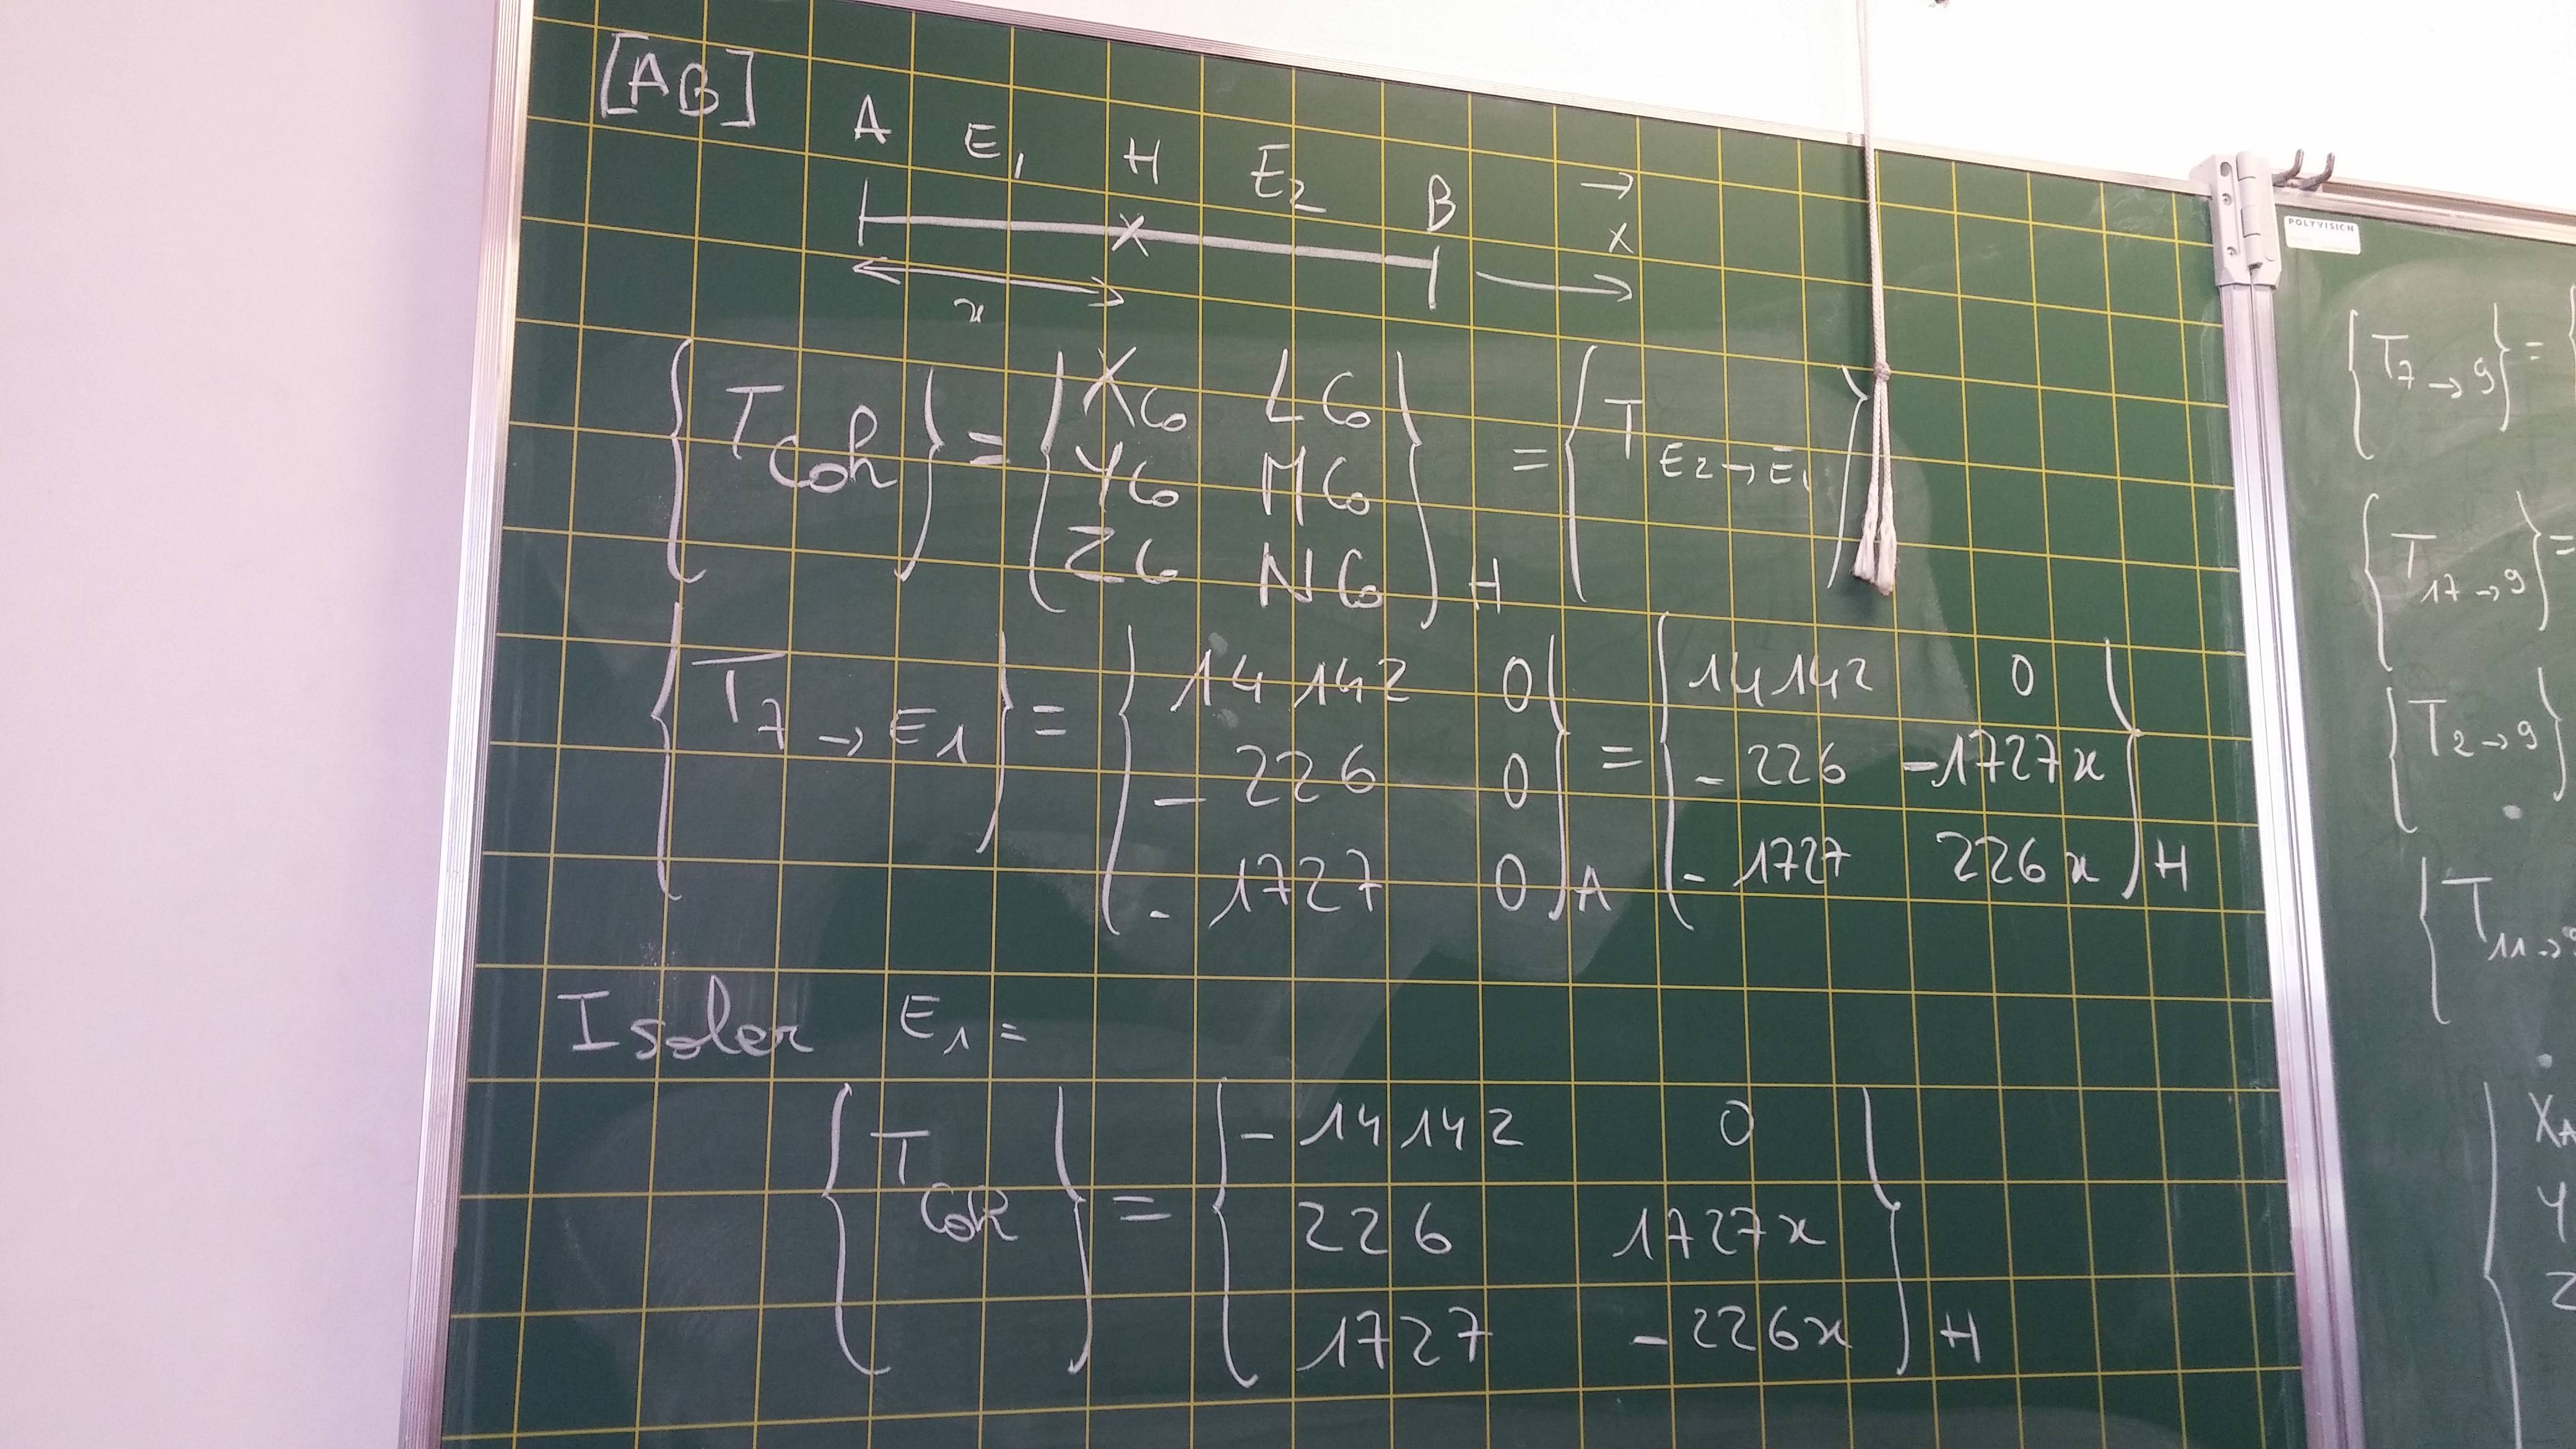 [AB]
A E1 H E2 B x
x
{T Coh} = {XG LG
YG MG
ZG NG} H = {T E2→E1}
{T 7→E1} = {14142 0
-226 0
-1727 0} A = {14142 0
-226 -1727x
-1727 226x} H
Isoler E1 =
{T Coh} = {-14142 0
226 1727x
1727 -226x} H
POLYVISION
{T 7→9} =
{T 17→9} =
{T 2→9}
{T 11→9